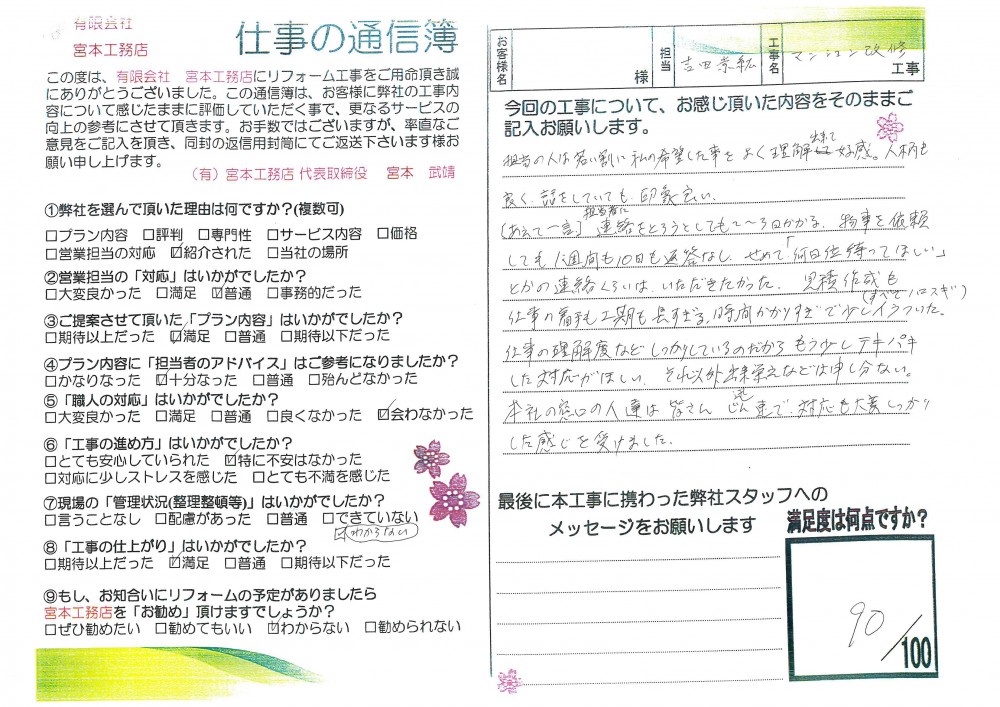 有限会社
宮本工務店
仕事の通信簿
この度は、有限会社 宮本工務店にリフォーム工事をご用命頂き誠
にありがとうございました。この通信簿は、お客様に弊社の工事内
容について感じたままに評価していただく事で、更なるサービスの
向上の参考にさせて頂きます。お手数ではございますが、率直なご
意見をご記入を頂き、同封の返信用封筒にてご返送下さいます様お
願い申し上げます。
(有)宮本工務店 代表取締役 宮本 武靖
①弊社を選んで頂いた理由は何ですか?(複数可)
□プラン内容 □評判 □専門性 □サービス内容 □価格
□営業担当の対応 ☑紹介された □当社の場所
②営業担当の「対応」はいかがでしたか?
□大変良かった □満足 ☑普通 □事務的だった
③ご提案させて頂いた「プラン内容」はいかがでしたか?
□期待以上だった ☑満足 □普通 □期待以下だった
④プラン内容に「担当者のアドバイス」はご参考になりましたか?
□かなりなった ☑十分なった □普通 □殆んどなかった
⑤「職人の対応」はいかがでしたか?
□大変良かった □満足 □普通 □良くなかった ☑会わなかった
⑥「工事の進め方」はいかがでしたか?
□とても安心していられた ☑特に不安はなかった
□対応に少しストレスを感じた □とても不満を感じた
⑦現場の「管理状況(整理整頓等)」はいかがでしたか?
□言うことなし □配慮があった □普通 □できていない
☑わからない
⑧「工事の仕上がり」はいかがでしたか?
□期待以上だった ☑満足 □普通 □期待以下だった
⑨もし、お知合いにリフォームの予定がありましたら
宮本工務店を「お勧め」頂けますでしょうか?
□ぜひ勧めたい □勧めてもいい ☑わからない □勧められない
お客様名 様 担当 吉田崇紘 工事名 マンション改修 工事
今回の工事について、お感じ頂いた内容をそのままご
記入お願いします。
担当の人は若い割に私の希望した事をよく理解出来て好感。人柄も
良く、話をしていても印象良い。
(あえて一言)担当者に連絡をとろうとしても2〜3日かかる。物事を依頼
しても1週間も10日も返答なし。せめて「何日位待ってほしい」
とかの連絡くらいは、いただきたかった。見積作成も
仕事の着手も工期も長すぎる。(すべてノロスギ)時間かかりすぎで少しイラついた。
仕事の理解度などしっかりしているのだからもう少しテキパキ
した対応がほしい。それ以外出来栄えなどは申し分ない。
本社の窓口の人達は皆さん で、対応も大変しっかり
した感じを受けました。
最後に本工事に携わった弊社スタッフへの
メッセージをお願いします
満足度は何点ですか?
90/100